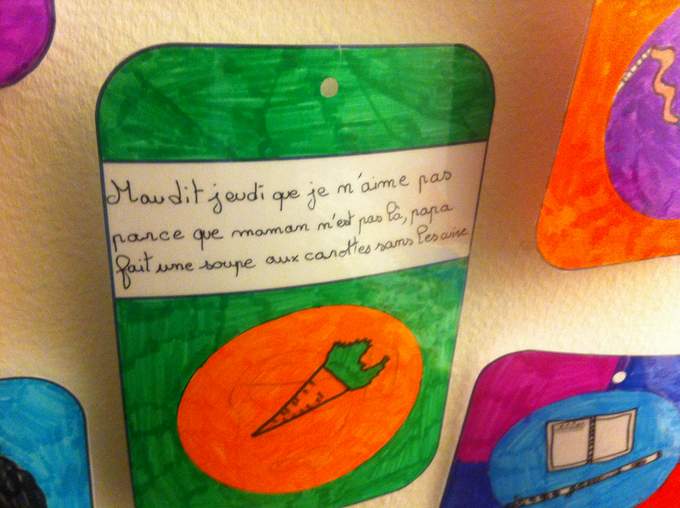 Maudit jeudi que je n'aime pas
parce que maman n'est pas là, papa
fait une soupe aux carottes sans les cuire